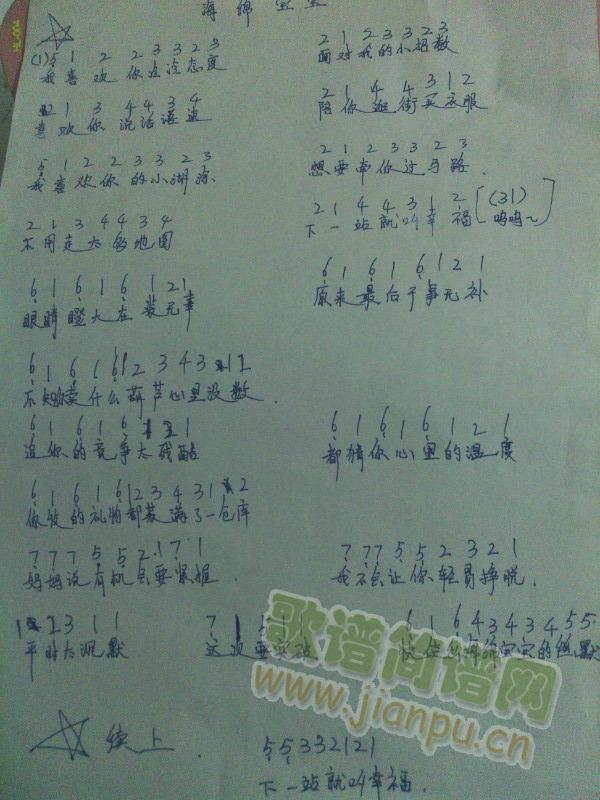 海绵宝宝
(1) 5 1 2 2 3 3 2 3
我喜欢你点点态度
2 1 2 3 3 2 3
面对我的小招数
2 1 3 4 4 3 4
喜欢你说话
2 1 4 4 3 1 2
陪你逛街买衣服
5 1 2 2 3 3 2 3
我喜欢你的小
2 1 2 3 3 2 3
想要带你过马路.
2 1 4 4 3 1 2 (31)
下一站就叫幸福 [呜呜~]
2 1 3 4 4 3 4
不用走太多地图
6 1 6 1 6 1 2 1
眼睛瞪大在装无辜
6 1 6 1 6 1 2 1
原来最后于事无补
6 1 6 1 6 1 2 3 4 3
不知你卖什么葫芦心里没数.
6 1 6 1 6 1
追你的竞争太残酷
6 1 6 1 6 1 2 1
都猜你心里的温度
6 1 6 1 6 1 2 3 4 3 1 2
你收的礼物都装满了一仓库
7 7 7 5 5 2 1 7 1
妈妈说有机会要紧握.
7 7 7 5 5 2 3 2 1
我不会让你轻易挣脱.
2 3 1 1
平时太沉默
7 1
这次要
6 1 6 4 3 4 3 4 5 5
海绵宝宝的幽默
歌谱简谱网
www.jianpu.cn
续上.
5 5 3 3 2 1 2 1
下一站就叫幸福.